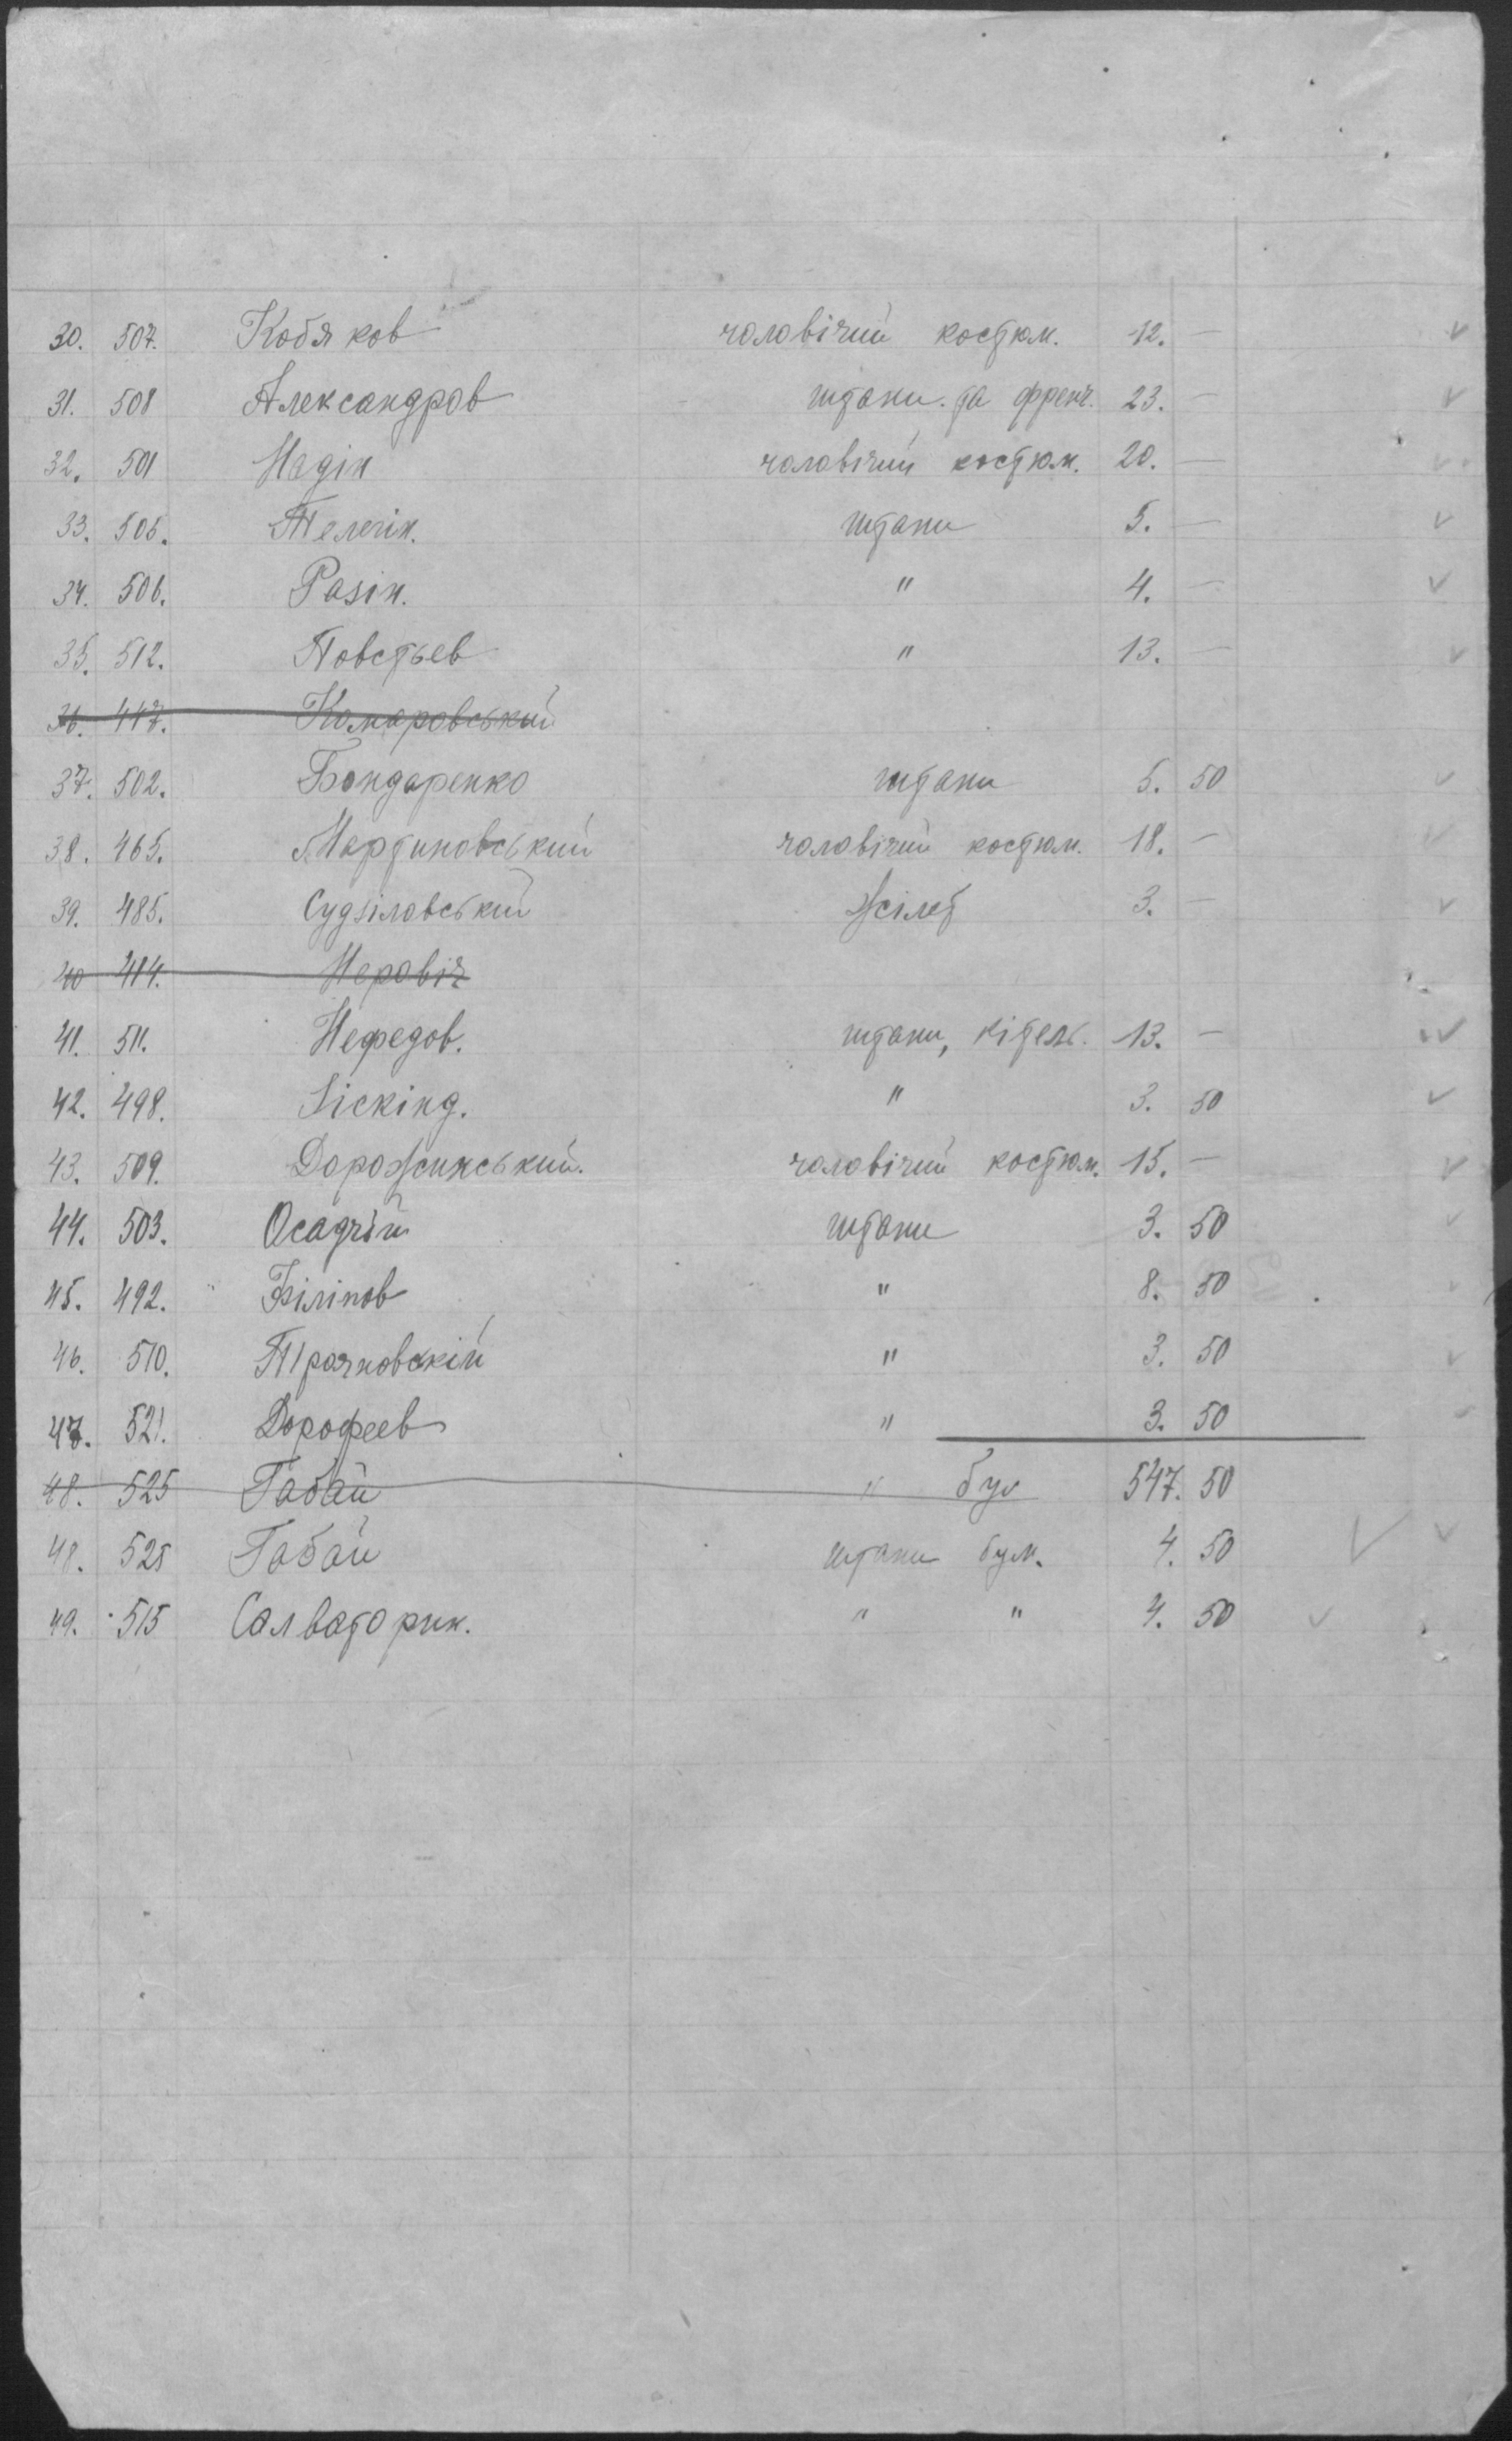 30. 507. Кобяков чоловічий костюм. 12. — ✓
31. 508 Александров штани. та френч. 23. — ✓
32. 501 Надін чоловічий костюм. 20. — ✓
33. 505. Телегін. штани 5. — ✓
34. 506. Разін. " 4. — ✓
35. 512. Повстьев " 13. — ✓
36. 447. Комаровський
37. 502. Бондаренко штани 5. 50 ✓
38. 465. Мартиновський чоловічий костюм. 18. — ✓
39. 485. Судзіловський жілет 3. — ✓
40 414. Неровіч
41. 511. Нефедов. штани, кітель. 13. — ✓
42. 498. " 3. 50 ✓
43. 509. Дорожинський. чоловічий костюм. 15. — ✓
44. 503. Осадчій штани 3. 50 ✓
45. 492. Філіпов " 8. 50 ✓
46. 510. " 3. 50 ✓
47. 521. Дорофеев " 3. 50
48. 525 Габай " бум 547. 50
48. 525 Габай штани бум. 4. 50 ✓ ✓
49. 515 Салваторик. " " 4. 50 ✓